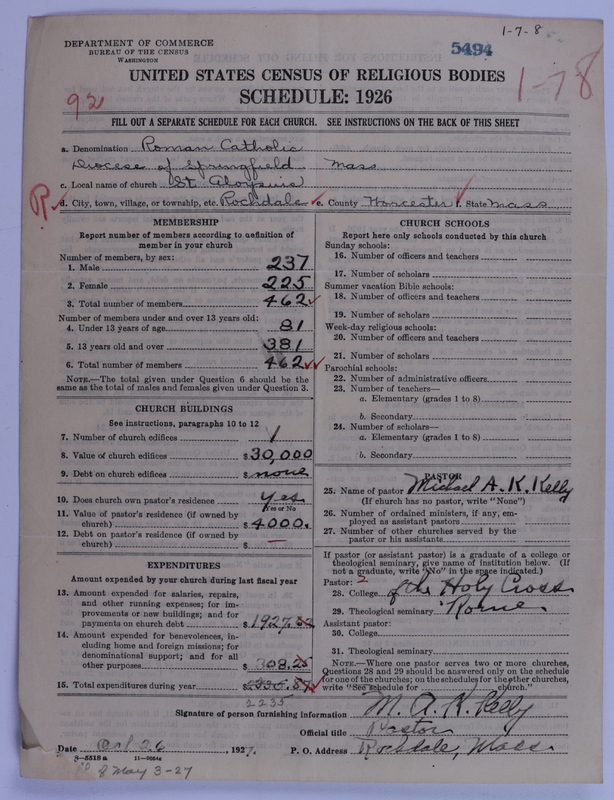 1-7-8
DEPARTMENT OF COMMERCE
BUREAU OF THE CENSUS
WASHINGTON
5494
UNITED STATES CENSUS OF RELIGIOUS BODIES
SCHEDULE: 1926
1-78
92
FILL OUT A SEPARATE SCHEDULE FOR EACH CHURCH. SEE INSTRUCTIONS ON THE BACK OF THIS SHEET
a. Denomination Roman Catholic
Diocese of Springfield Mass
c. Local name of church St Aloysius
R d. City, town, village, or township, etc. Rochdale e. County Worcester f. State Mass
MEMBERSHIP
Report number of members according to definition of
member in your church
Number of members, by sex:
1. Male 237
2. Female 225
3. Total number of members 462
Number of members under and over 13 years old:
4. Under 13 years of age 81
5. 13 years old and over 381
6. Total number of members 462
NOTE.—The total given under Question 6 should be the
same as the total of males and females given under Question 3.
CHURCH BUILDINGS
See instructions, paragraphs 10 to 12
7. Number of church edifices 1
8. Value of church edifices $30,000
9. Debt on church edifices $ none
10. Does church own pastor's residence Yes
Yes or No
11. Value of pastor's residence (if owned by
church) $4000.
12. Debt on pastor's residence (if owned by
church) $ —
EXPENDITURES
Amount expended by your church during last fiscal year
13. Amount expended for salaries, repairs,
and other running expenses; for im-
provements or new buildings; and for
payments on church debt $1927.62
14. Amount expended for benevolences, in-
cluding home and foreign missions; for
denominational support; and for all
other purposes $308.25
15. Total expenditures during year $2235.87
2235
CHURCH SCHOOLS
Report here only schools conducted by this church
Sunday schools:
16. Number of officers and teachers
17. Number of scholars
Summer vacation Bible schools:
18. Number of officers and teachers
19. Number of scholars
Week-day religious schools:
20. Number of officers and teachers
21. Number of scholars
Parochial schools:
22. Number of administrative officers
23. Number of teachers—
a. Elementary (grades 1 to 8)
b. Secondary
24. Number of scholars—
a. Elementary (grades 1 to 8)
b. Secondary
PASTOR
25. Name of pastor Michael A. K. Kelly
(If church has no pastor, write "None")
26. Number of ordained ministers, if any, em-
ployed as assistant pastors
27. Number of other churches served by the
pastor or his assistants
If pastor (or assistant pastor) is a graduate of a college or
theological seminary, give name of institution below. (If
not a graduate, write "No" in the space indicated.)
Pastor: 2
28. College of the Holy Cross
29. Theological seminary Rome
Assistant pastor:
30. College
31. Theological seminary
NOTE.—Where one pastor serves two or more churches,
Questions 28 and 29 should be answered only on the schedule
for one of the churches; on the schedules for the other churches,
write "See schedule for church."
Signature of person furnishing information M. A. K. Kelly
Official title Pastor
Date 26, 1927. P. O. Address Rochdale, Mass.
8—5518a 11—9864a
8 May 3-27